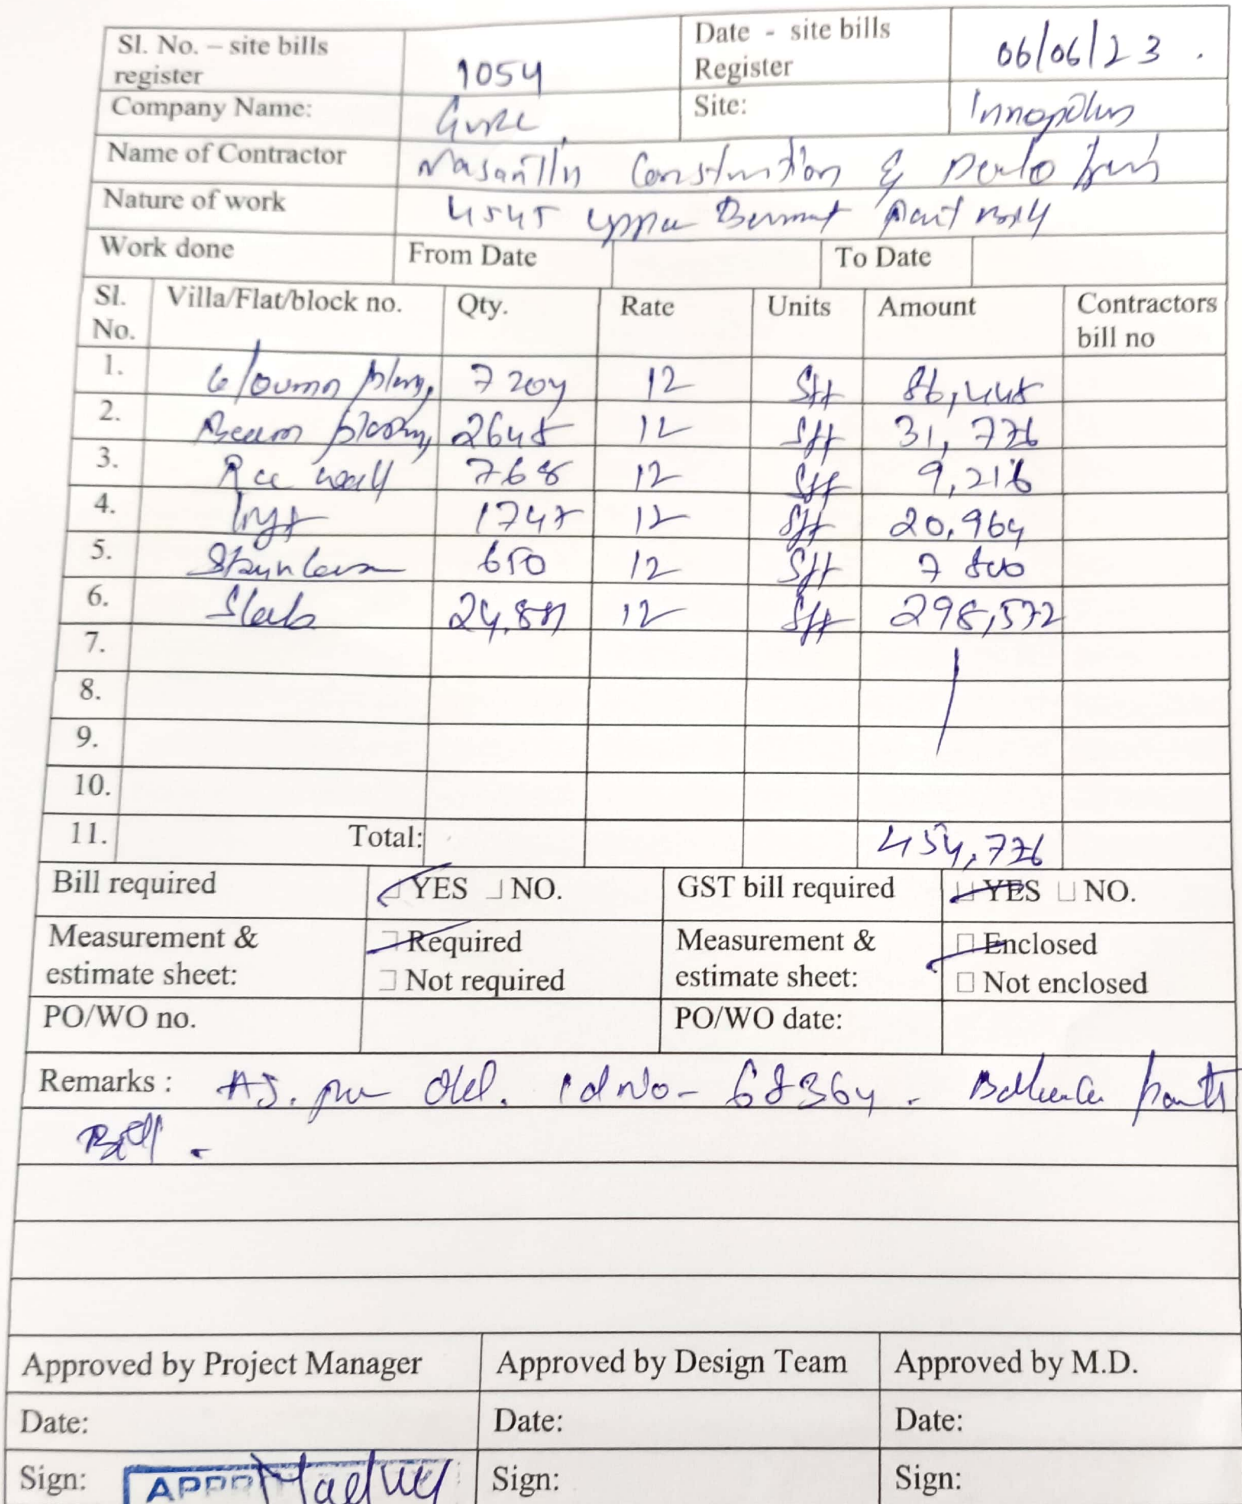 Sl. No. – site bills register 1054 Date - site bills Register 06/06/23.
Company Name: Gvrc Site: Innopolus
Name of Contractor Construction &
Nature of work 4545 upper
Work done From Date To Date
Sl. No. Villa/Flat/block no. Qty. Rate Units Amount Contractors bill no
1. Coloumn 7204 12 Sft 86,448
2. Beam 2648 12 Sft 31,776
3. Rcc wall 768 12 Sft 9,216
4. 1747 12 Sft 20,964
5. 650 12 Sft 7800
6. Slab 24,881 12 Sft 298,572
7.
8.
9.
10.
11. Total: 454,776
Bill required YES NO. GST bill required YES NO.
Measurement & estimate sheet: Required Not required Measurement & estimate sheet: Enclosed Not enclosed
PO/WO no. PO/WO date:
Remarks : As. per Old. Id No- 68364.
Bill.
Approved by Project Manager Approved by Design Team Approved by M.D.
Date: Date: Date:
Sign: Sign: Sign: